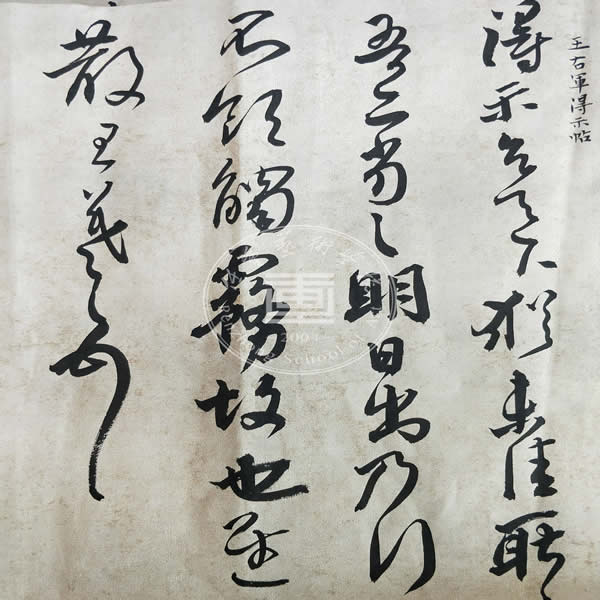 王右軍得示帖
得示知足下猶未佳耿々
吾亦劣々明日出乃行
不欲觸霧故也遲
散王羲之頓首
2004
School of